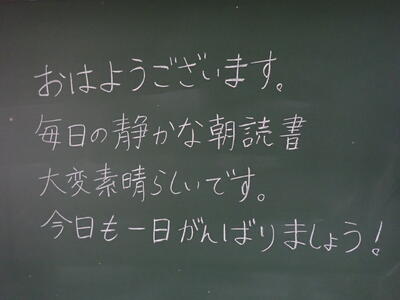 おはようございます。
毎日の静かな朝読書
大変素晴らしいです。
今日も一日がんばりましょう!